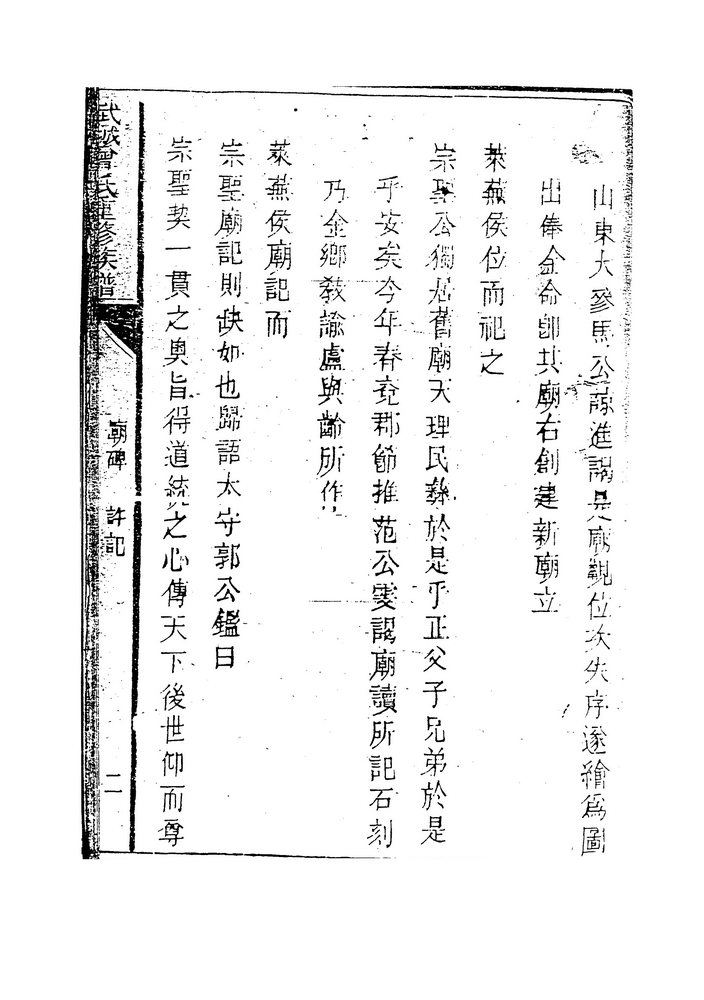 山東大參馬公諒進謁是廟觀位次失序遂繪為圖
出俸金命卽其廟右創建新廟立
萊蕪侯位而祀之
宗聖公獨居舊廟天理民彝於是乎正父子兄弟於是
乎安矣今年春兗郡節推范公雯謁廟讀所記石刻
乃金鄉敎諭盧與齡所作
萊蕪侯廟記而
宗聖廟記則缺如也歸語太守郭公鑑曰
宗聖契一貫之奧旨得道統之心傳天下後世仰而尊
武城曾氏重修族譜
廟碑 許記
二